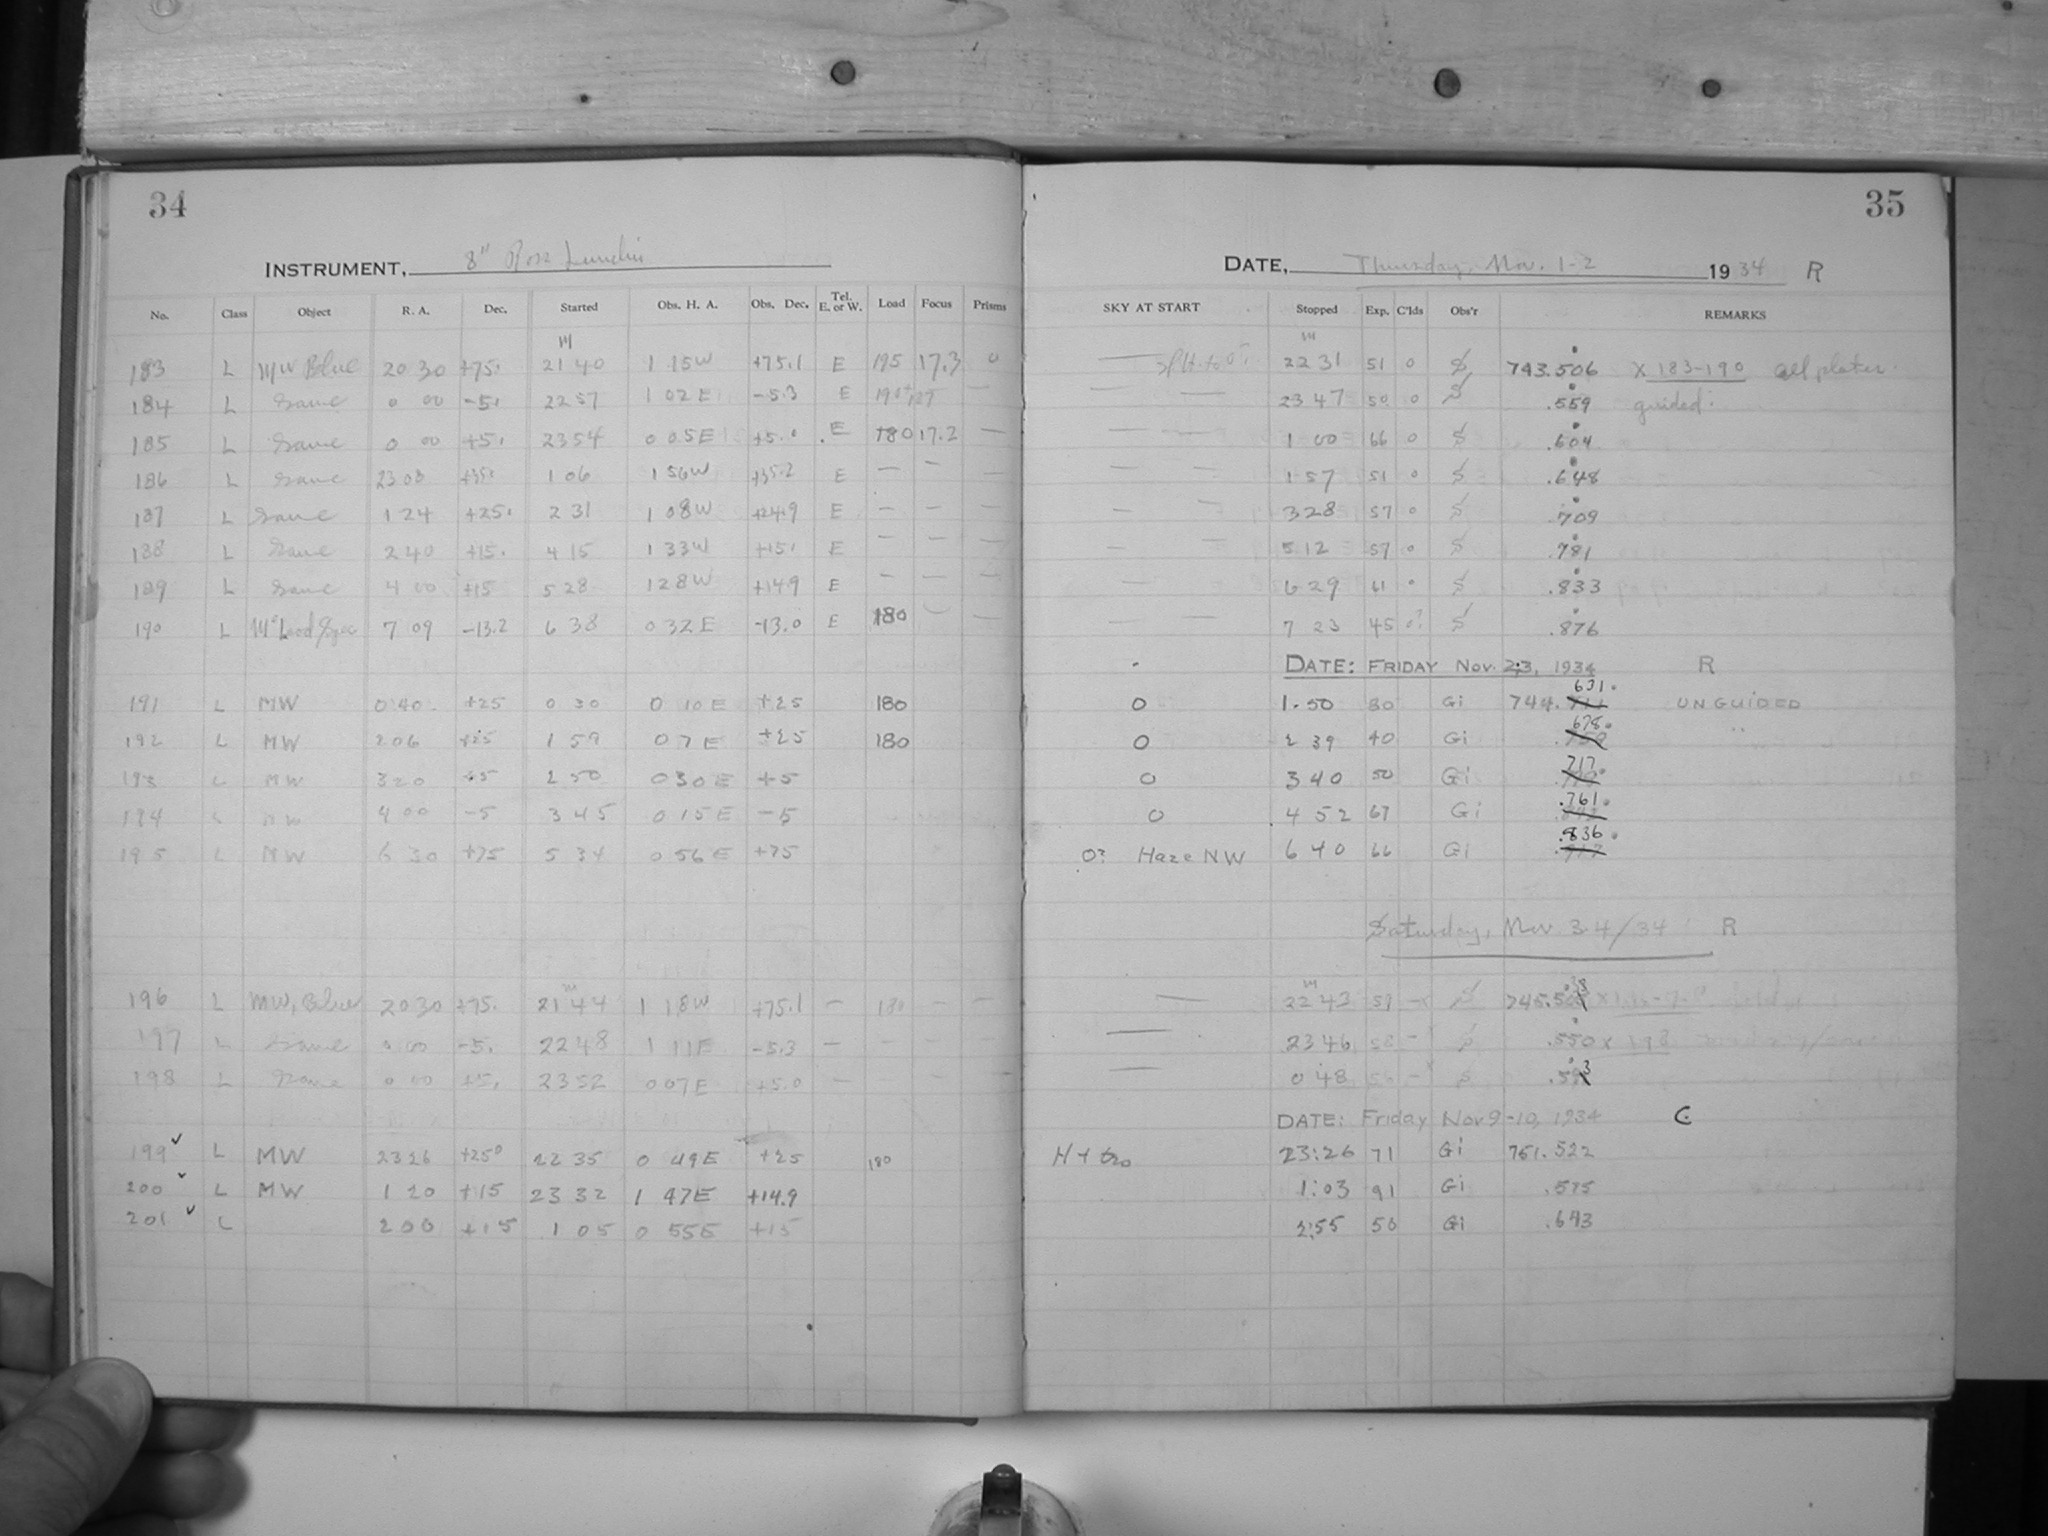 34
INSTRUMENT, 8" Ross Lundin
No. Class Object R. A. Dec. Started Obs. H. A. Obs. Dec. Tel. E. or W. Load Focus Prisms
183 L MW Blue 20 30 +75. 21 40 1 15W +75.1 E 195 17.3 0
184 L Same 0 00 -5. 22 57 1 02E -5.3 E —
185 L Same 0 00 +5. 23 54 0 05E +5.0 E 180 17.2 —
186 L Same 23 08 +35. 1 06 1 56W +35.2 E — — —
187 L Same 1 24 +25. 2 31 1 08W +24.9 E — — —
188 L Same 2 40 +15. 4 15 1 33W +15. E — — —
189 L Same 4 00 +15 5 28 1 28W +14.9 E — — —
190 L 7 09 -13.2 6 38 0 32E -13.0 E 180 — —
191 L MW 0 40 +25 0 30 0 10E +25 180
192 L MW 2 06 +25 1 59 0 7E +25 180
193 L MW 3 20 +5 2 50 0 30E +5
194 L MW 4 00 -5 3 45 0 15E -5
195 L MW 6 30 +75 5 34 0 56E +75
196 L MW, Blue 20 30 +75. 21 44 1 18W +75.1 — 180 — —
197 L Same 0 00 -5. 22 48 1 11E -5.3 — — — —
198 L Same 0 00 +5. 23 52 0 07E +5.0 — — —
199 ✓ L MW 23 26 +25° 22 35 0 49E +25 180
200 ✓ L MW 1 20 +15 23 32 1 47E +14.9
201 ✓ L 2 00 +15 1 05 0 55E +15
35
DATE, Thursday, Nov. 1-2 1934 R
SKY AT START Stopped Exp. C'lds Obs'r REMARKS
22 31 51 0 S 743.506 X 183-190 all plates
— — 23 47 50 0 S .559 guided.
— — 1 00 66 0 S .604
— — 1 57 51 0 S .648
— — 3 28 57 0 S .709
— — 5 12 57 0 S .781
— — 6 29 61 0 S .833
— — 7 23 45 0? S .876
DATE: FRIDAY Nov. 2-3, 1934 R
0 1.50 80 Gi 744. 631 UNGUIDED
0 2 39 40 Gi 678
0 3 40 50 Gi 717
0 4 52 67 Gi .761
0? Haze NW 6 40 66 Gi .836
Saturday, Nov 3-4/34 R
— 22 43 59 S 745.508
— 23 46 58 S .550 x 198
— 0 48 56 S .593
DATE: Friday Nov 9-10, 1934 C
23:26 71 Gi 751.522
1:03 91 Gi .575
1:55 50 Gi .643